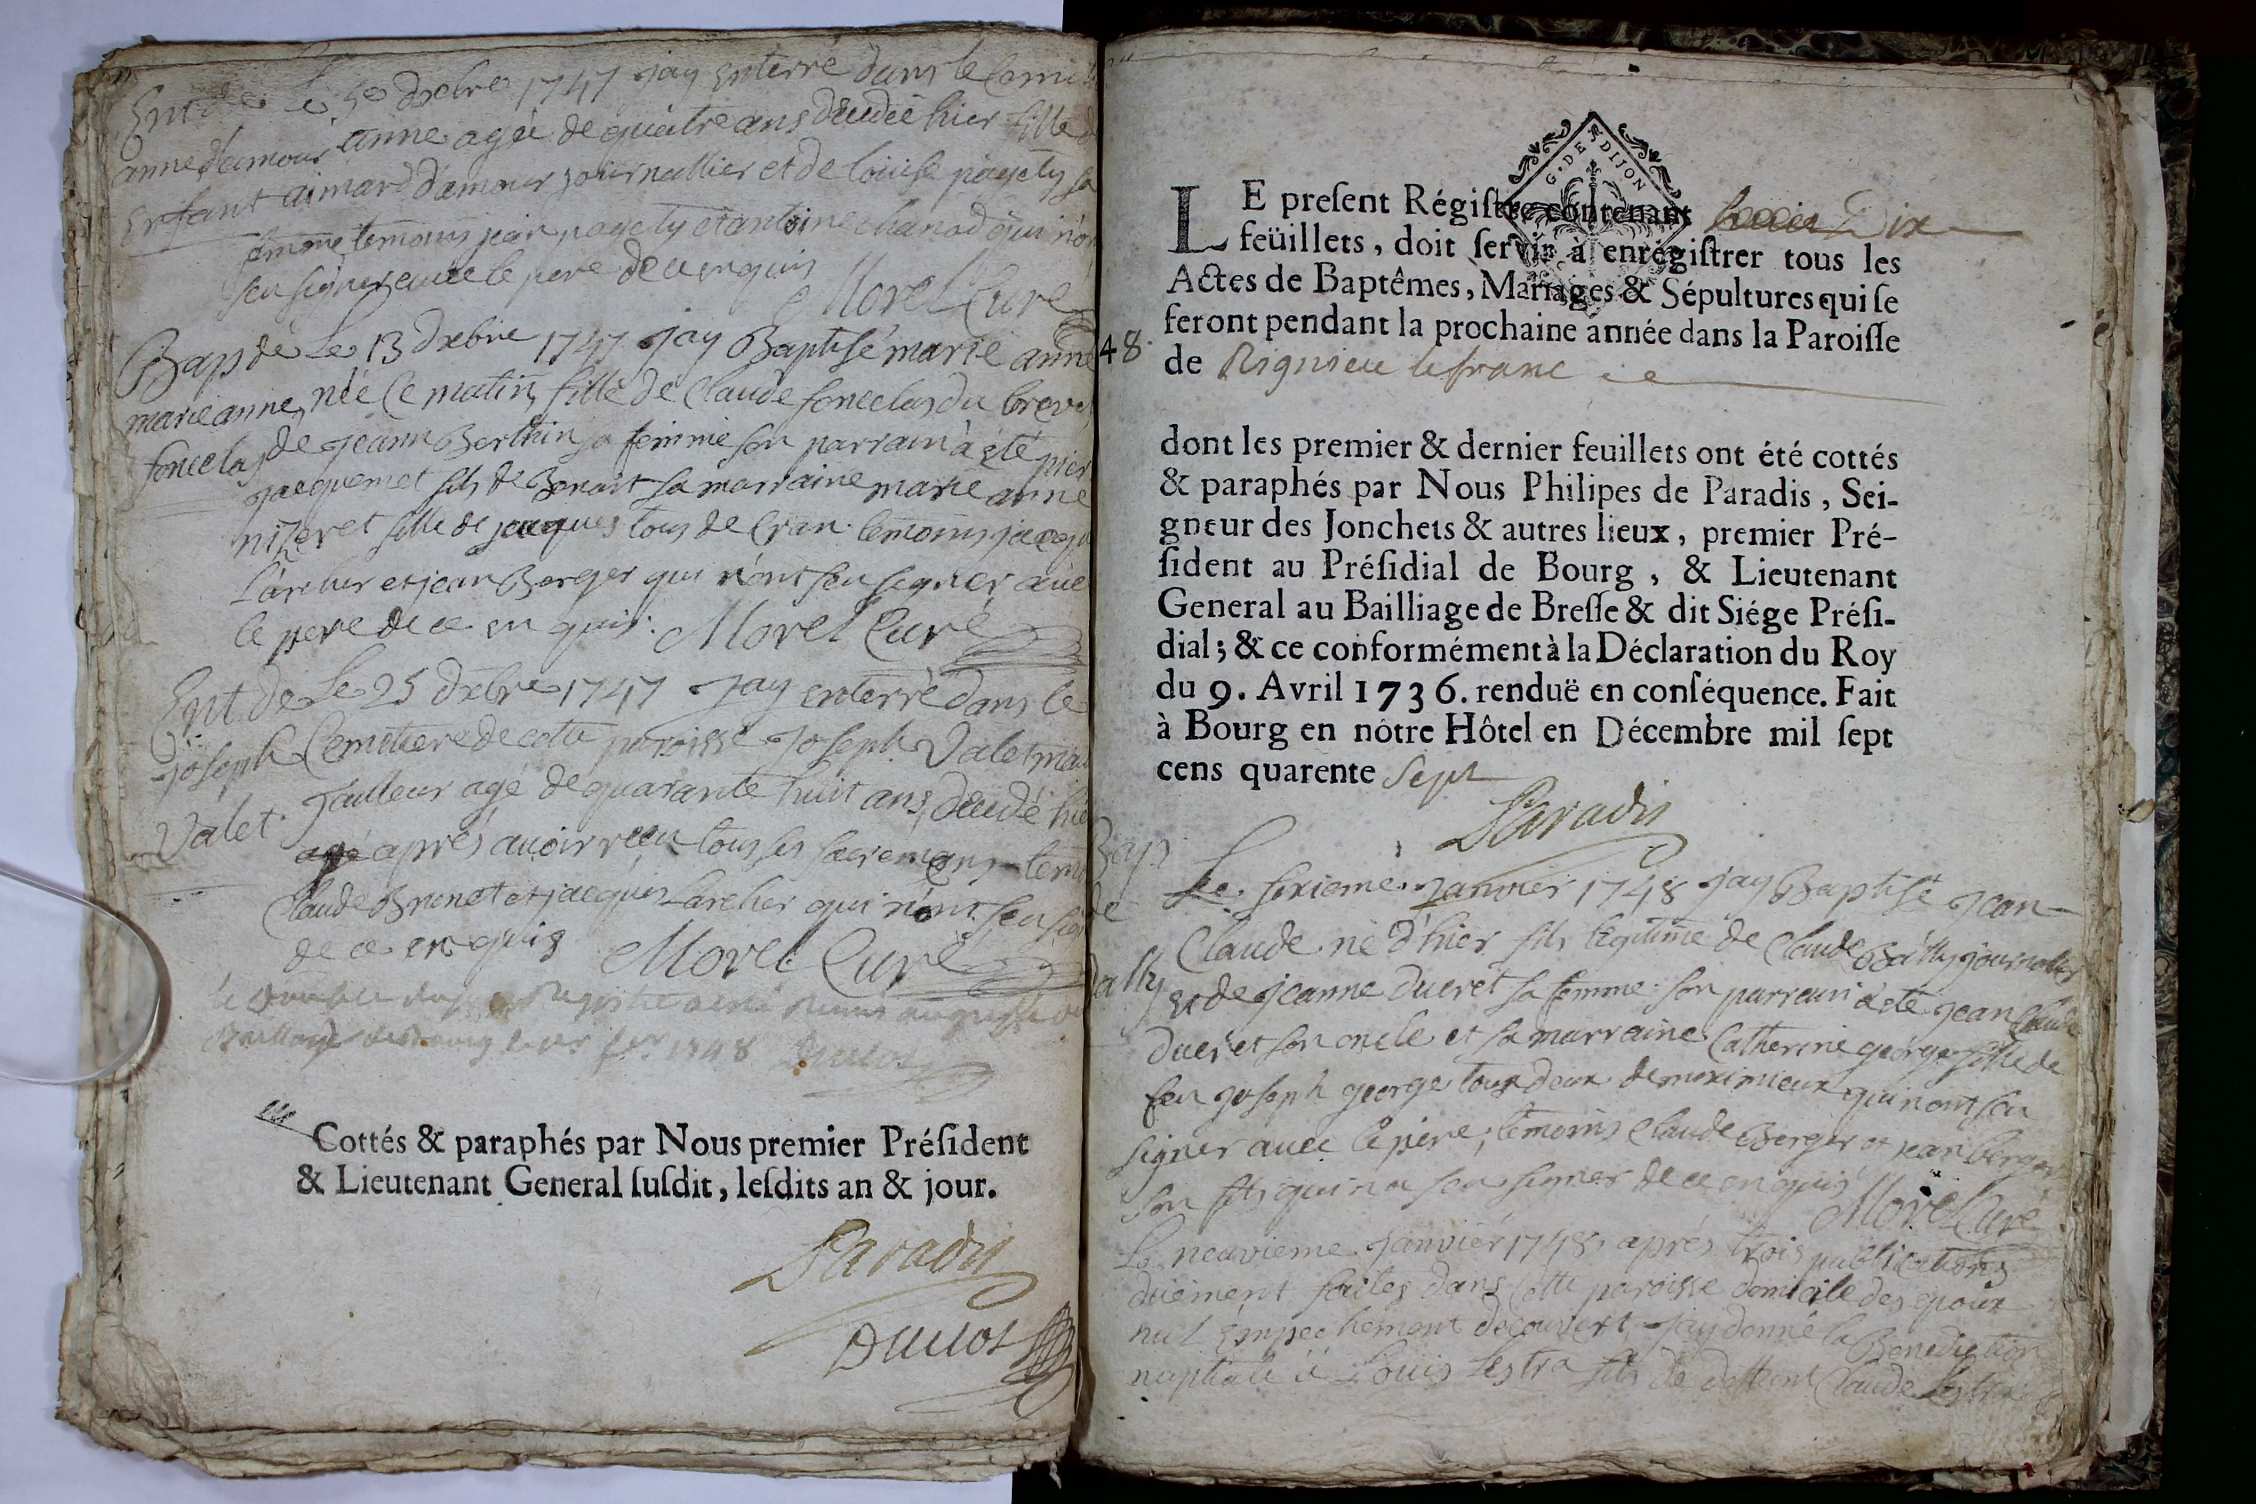 Ent de Le 5e dxbre 1747 jay Enterré dans le Cemi
anne damour anne agée de quatre ans deudée hier fille d
Enfant aimard damour journallier et de louise pagety sa
femme, temoins jean pagety et antoine chanod qui n'on
seu signer avec le pere de ce enquis
Morel Curé
Bap de Le 13 dxbre 1747 jay Baptisé marie anne
marie anne née ce matin fille de Claude foncelas du breve
foncelas de jeann Berthin sa femme son parrain à été pier
jacquemet fils de Benoit sa marraine marie anne
nizeret fille de jacques tous de Cran. temoins jacqu
Larcher et jean Berger qui n'ont seu signer avec
le pere de ce en quis. Morel Curé
Ent de Le 25 dxbre 1747 jay enterré dans le
joseph Cemitiere de cette paroisse joseph Valet ma
Valet. Tailleur agé de quarante huit ans, deudé hie
après avoir reçu tous ses sacremens temo
Claude Brunet et jacques Larcher qui n'ont seu sig
de ce en quis Morel Curé
le double du Registre a été Remis au greffe du
Bailliage de Bourg le 1748 Duclos
Cottés & paraphés par Nous premier Préſident
& Lieutenant General ſuſdit, leſdits an & jour.
Paradis
Duclos
G. DES DIJON
48.
LE preſent Régiſtre contenant Dix
feüillets, doit ſervir à enrégiſtrer tous les
Actes de Baptêmes, Mariages & Sépultures qui ſe
feront pendant la prochaine année dans la Paroiſſe
de Rignieu lefranc
dont les premier & dernier feuillets ont été cottés
& paraphés par Nous Philipes de Paradis, Sei-
gneur des Jonchets & autres lieux, premier Pré-
ſident au Préſidial de Bourg, & Lieutenant
General au Bailliage de Breſſe & dit Siége Préſi-
dial; & ce conformément à la Déclaration du Roy
du 9. Avril 1736. renduë en conſéquence. Fait
à Bourg en nôtre Hôtel en Décembre mil ſept
cens quarente sept
Paradis
Bap
de Le sixieme janvier 1748 jay Baptisé jean
Claude né d'hier fils legitime de Claude Bailly journalier
ally et de jeanne Ducret sa femme. son parrain a été jean Claude
Ducret son oncle et sa marraine Catherine george fille de
feu joseph george tous deux de meximieux qui n'ont seu
signer avec le pere, temoins Claude Berger et jean berger
son fils qui n'a seu signer de ce enquis
Morel Curé
Le neuvieme janvier 1748, après trois publications
duement faites dans cette paroisse domicile des epoux
nul Empechement decouvert, jay donné la Benediction
nuptiale à Louis Lestra fils de deffunt Claude Lestra